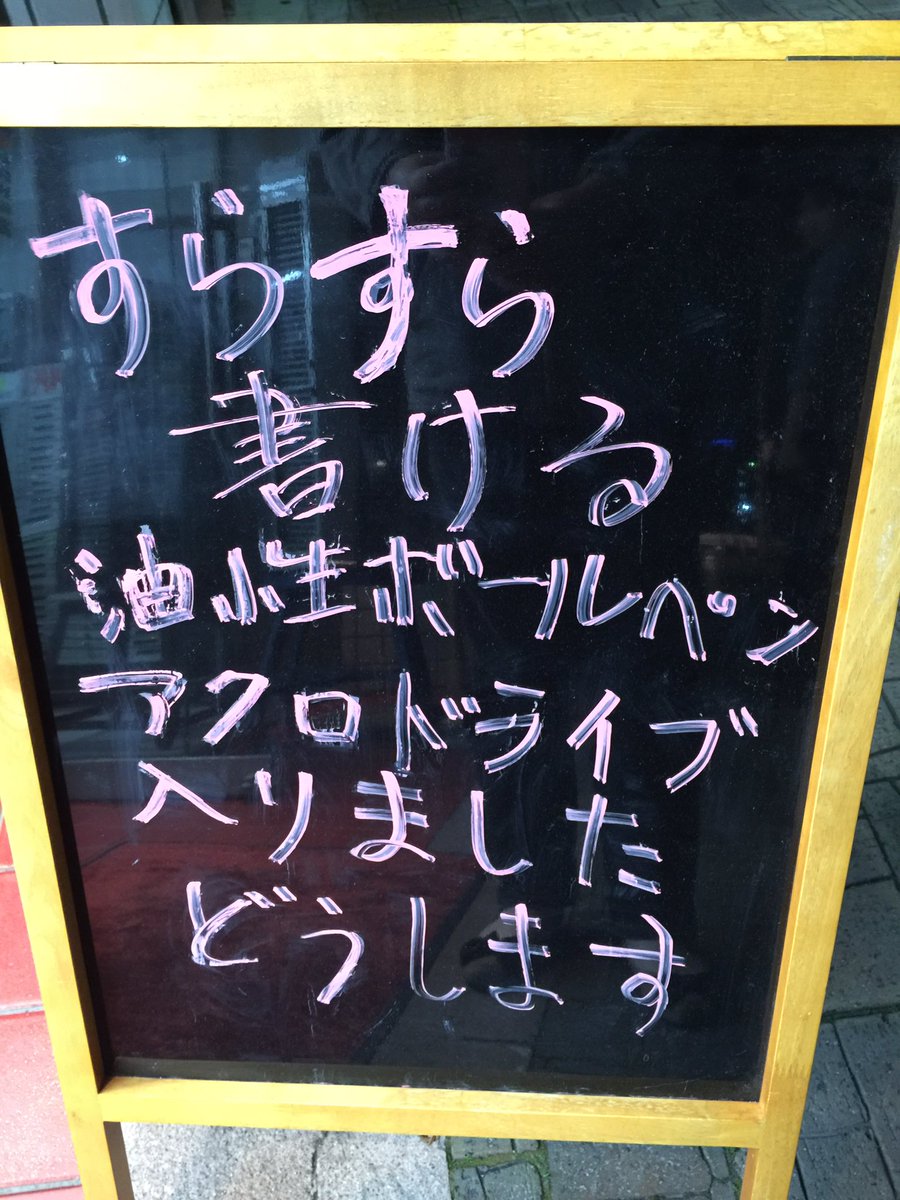 すらすら
書ける
油性ボールペン
アクロドライブ
入りました
どうします